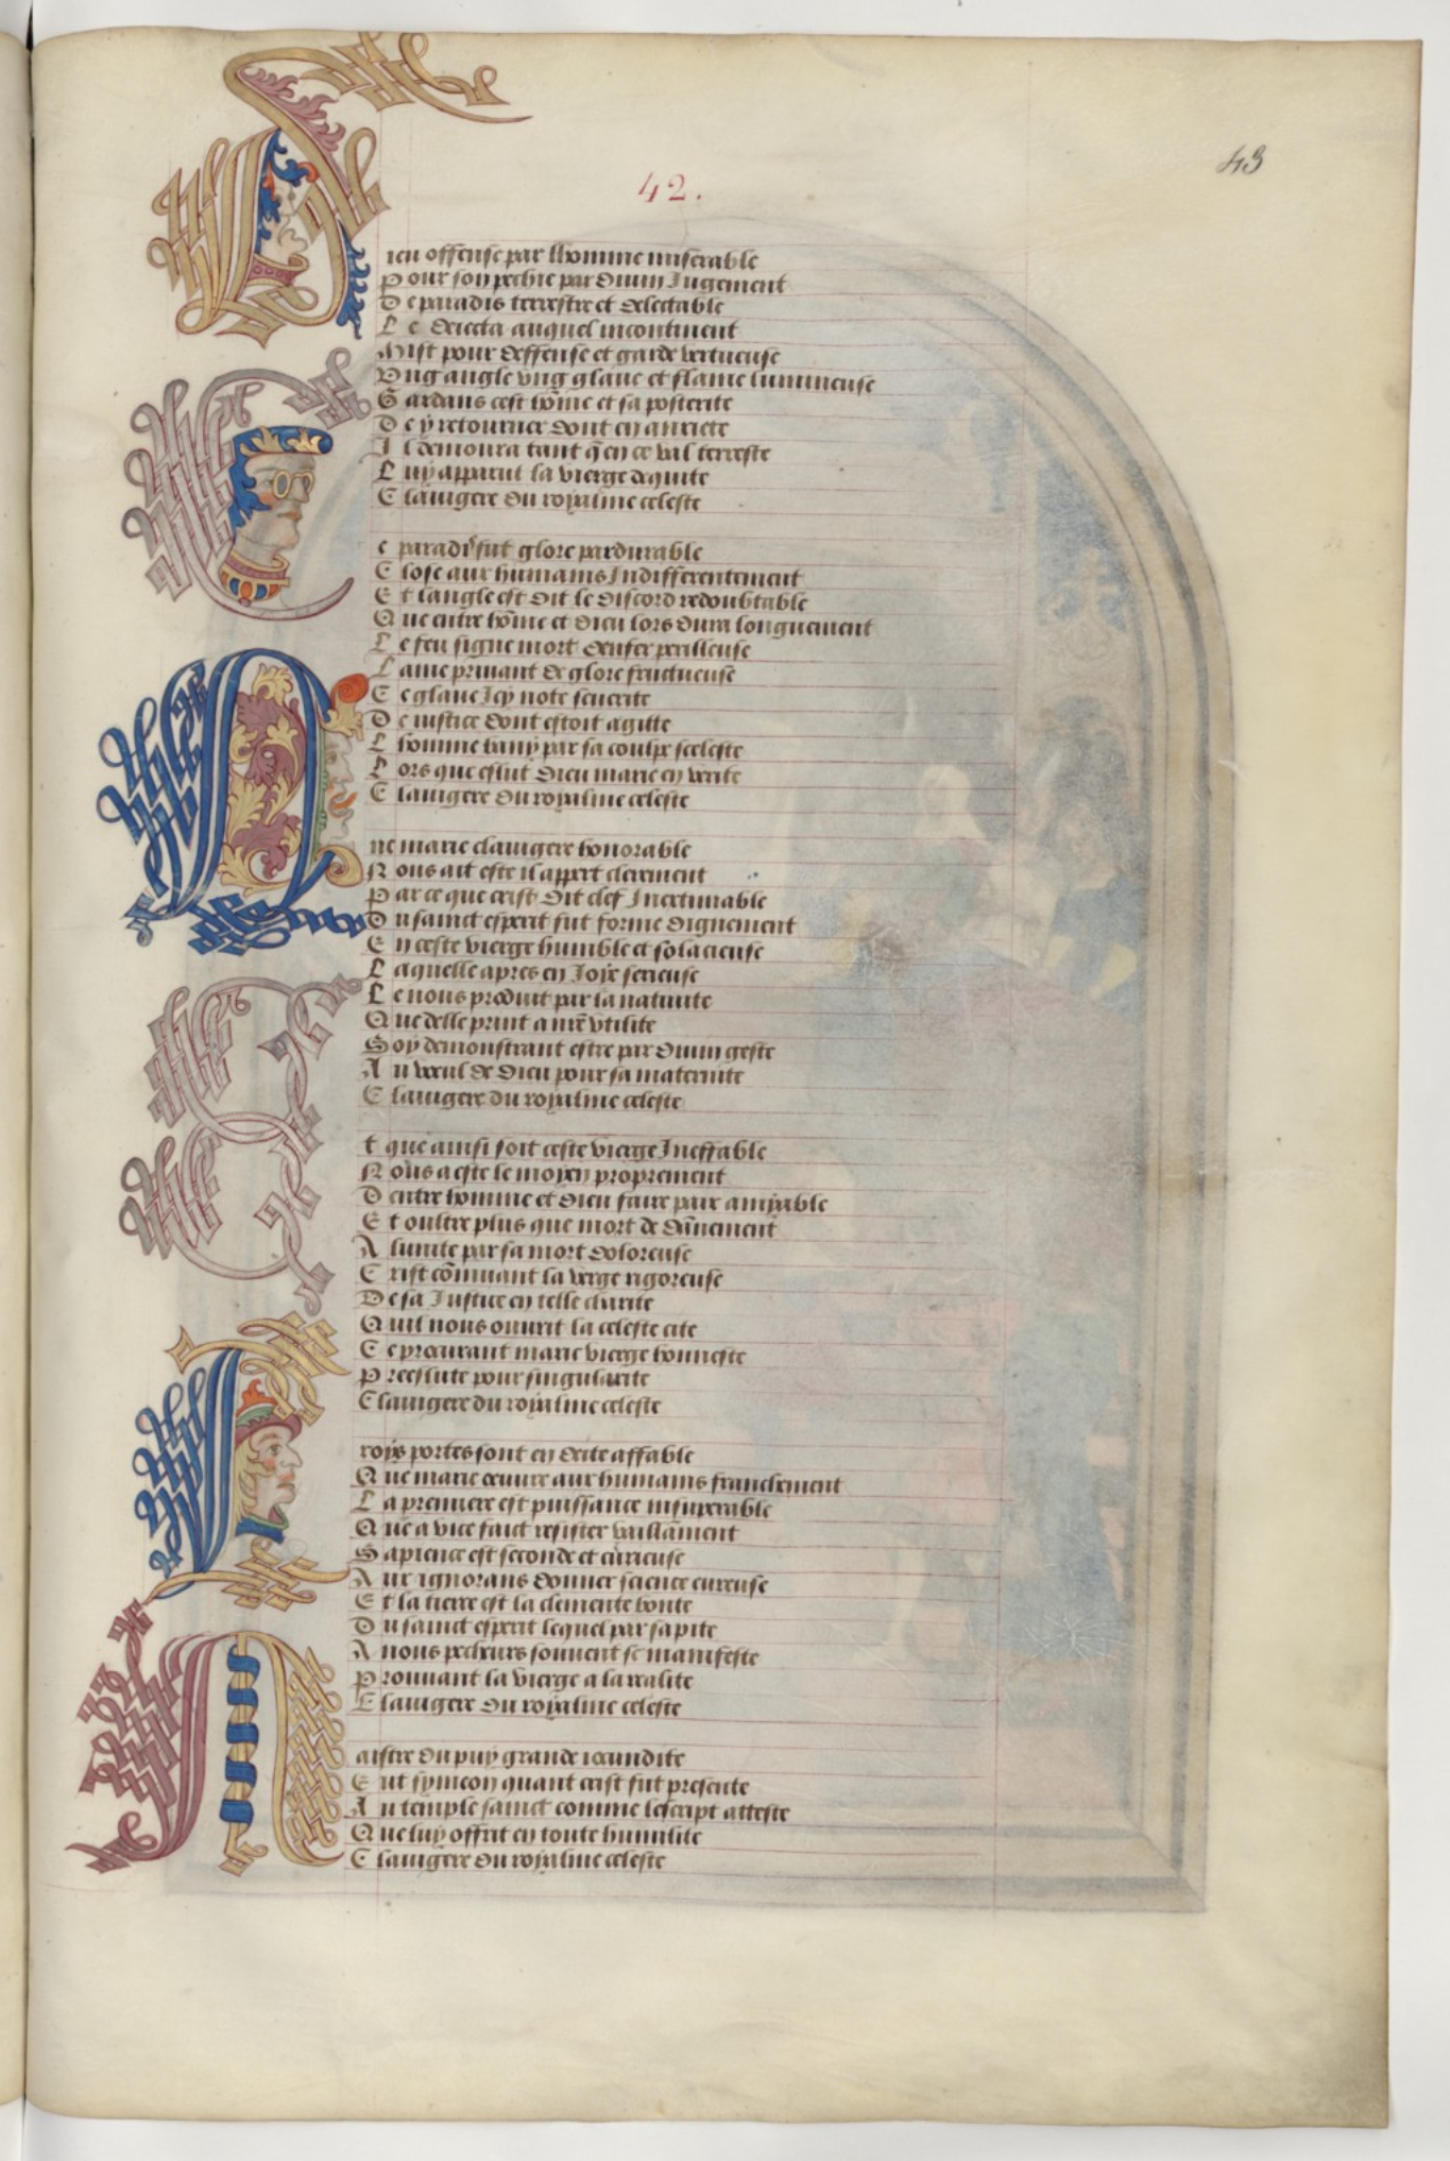 43
42.
Dieu offense par lhomme miserable
Pour son pechie par diuin Jugement
De paradis terrestre et delectable
Le deiecta auquel incontinent
Mist pour deffense et garde vertueuse
Vng angle vng glaue et flame lumineuse
Gardans cest hom̄e et sa posterite
De y retourner dont en anxiete
Il demoura tant q̄ en ce val terreste
Luy apparut la vierge dequite
Clauigere du royalme celeste
Ce paradis fut glore pardurable
Close aux humains Indifferentement
Et langle est dit le discord redoubtable
Que entre hom̄e et dieu lors dura longuement
Le feu signe mort denfer perilleuse
Lame priuant de glore fructueuse
Ce glaue Icy note seuerite
De iustice dont estoit agitte
Lhomme bany par sa coulpe sceleste
Lors que eslut dieu marie en verite
Clauigere du royalme celeste
Que marie clauigere honorable
Nous ait este il appert clerement
Par ce que crist dit clef Inextimable
Du sainct esperit fut forme dignement
En ceste vierge humble et solacieuse
Laquelle apres en Joye serieuse
Le nous produit par la natiuite
Que delle print a nr̄e vtilite
Soy demonstrant estre par diuin geste
Au veul de dieu pour sa maternite
Clauigere du royalme celeste
Et que ainsi soit ceste vierge Ineffable
Nous a este le moyen proprement
Dentre homme et dieu faire paix amyable
Et oultre plus que mort de dān̄ement
A lumite par sa mort doloreuse
Crist com̄uant la verge rigoreuse
De sa Justice en telle charite
Quil nous ouurit la celeste cite
Ce procurant marie vierge honneste
Preeslute pour singularite
Clauigere du royalme celeste
Troys portes sont en dicte affable
Que marie oeuure aux humains franchement
La premiere est puissance insuperable
Que a vice faict resister vaillam̄ent
Sapience est seconde et curieuse
Aux ignorans donner science eureuse
Et la tierce est la clemente bonte
Du sainct esperit lequel par sa pite
A nous pecheurs souuent se manifeste
Prouuant la vierge a la realite
Clauigere du royalme celeste
Maistre du puy grande iocundite
Eut symeon quant crist fut presente
Au temple sainct comme lescript atteste
Que luy offrit en toute humilite
Clauigere du royalme celeste